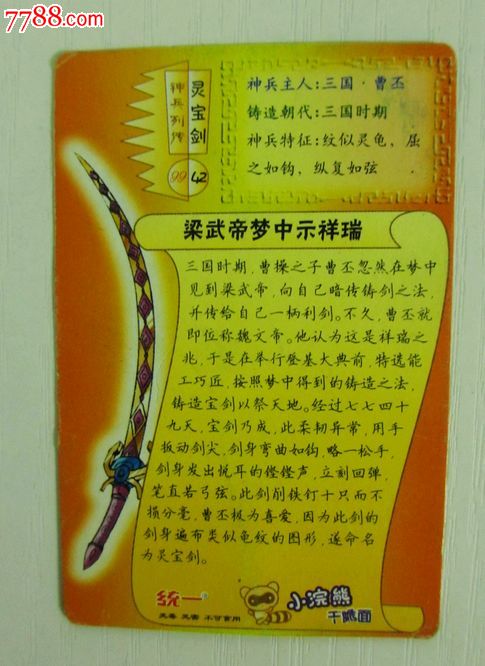 7788.com
灵宝剑
神兵列传
99
42
神兵主人:三国·曹丕
铸造朝代:三国时期
神兵特征:纹似灵龟,屈
之如钩,纵复如弦
梁武帝梦中示祥瑞
三国时期,曹操之子曹丕忽然在梦中
见到梁武帝,向自己暗传铸剑之法,
并传给自己一柄利剑。不久,曹丕就
即位称魏文帝。他认为这是祥瑞之
兆,于是在举行登基大典前,特选能
工巧匠,按照梦中得到的铸造之法,
铸造宝剑以祭天地。经过七七四十
九天,宝剑乃成,此柔韧异常,用手
扳动剑尖,剑身弯曲如钩,略一松手,
剑身发出悦耳的铿铿声,立刻回弹,
笔直若弓弦。此剑削铁钉十只而不
损分毫,曹丕极为喜爱,因为此剑的
剑身遍布类似龟纹的图形,遂命名
为灵宝剑。
统一
小浣熊
干脆面
无毒 无害 不可食用